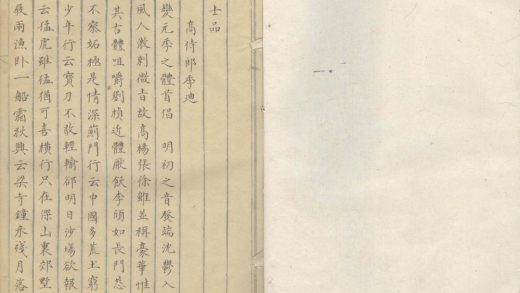 士品
高侍郎季迪
變元季之體首倡 明初之音發端沈鬱入
風人激刺微旨故高楊張徐雖並稱豪華惟
其古體咀嚼劉楨近體厭飫李頎如長門怨
不察妬極是情深薊門行云中國多荒土窮
少年行云寶刀不敢輕輸卻明日沙場欲報
云猛虎雖猛猶可喜橫行只在深山裏郊墅
雨漁卧一船霜秋興云梁寺鐘來殘月落